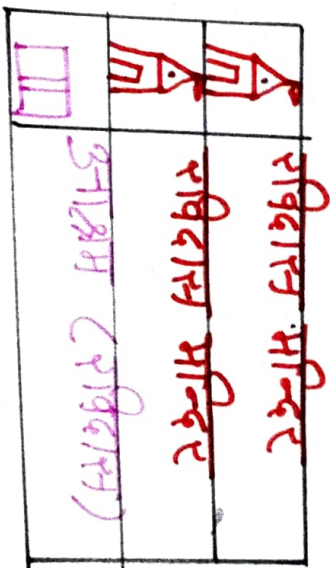 रविदास मन्दिर
रविदास मन्दिर
आश्रम (रविदास)